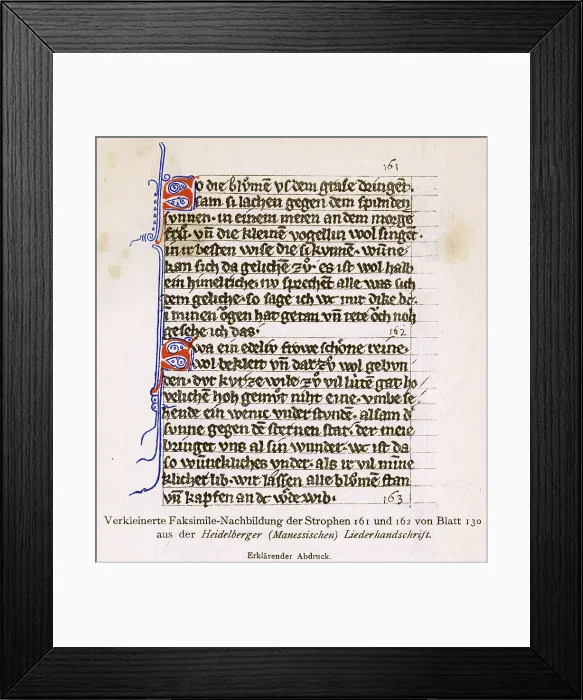 161
So die blůmē vs dem grase dringēt.
sam si lachen gegen dem spilnden
svnnen. in einem meien an dem morgē
frůi. vn̄ die kleinē vogellin wol singēt.
in ir besten wise die si kvnnē. wūne
kan sich da gelichē zů. es ist wol halb
ein himelriche. nv sprechēt alle was sich
dem geliche. so sage ich wc mir dike bc.
i minen ögen hat getan vn̄ tete öch noh
gesehe ich das.
162
Swa ein edelv frowe schōne reine.
wol bekleit vn̄ dar zů wol gebvn
den. dvr kvrzewile zů vil lūtē gat ho
velichē hoh gemůt niht eine. vmbe se
hende ein wenic vnder stvndē. alsam d'
sunne gegen dē sternen stat. der meie
bringet vns al sin wunder. wc ist da
so wūnekliches vnder. als ir vil mīne
klicher lib. wir lassen alle blůmē stan
vn̄ kapfen an dc w'de wib.
163
Verkleinerte Faksimile-Nachbildung der Strophen 161 und 162 von Blatt 130
aus der Heidelberger (Manessischen) Liederhandschrift.
Erklärender Abdruck.